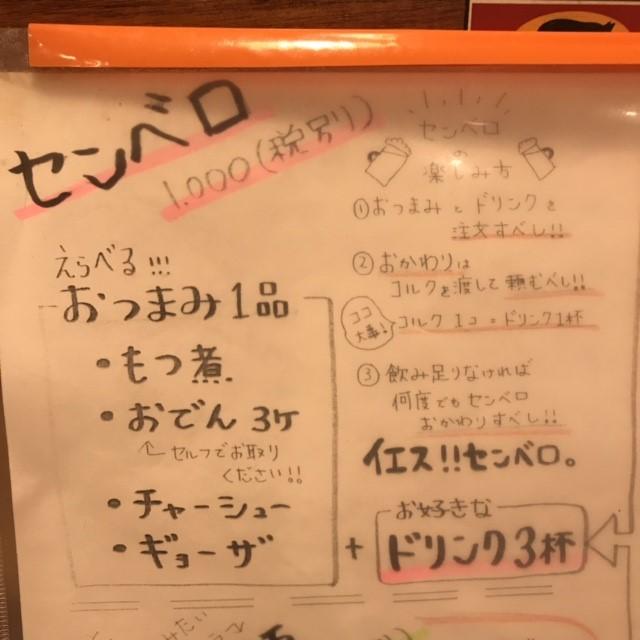 センベロ
1.000(税別)
えらべる!!!
おつまみ1品
・もつ煮
・おでん3ヶ
←セルフでお取り
ください!!
・チャーシュー
・ギョーザ
センベロ
の
楽しみ方
①おつまみとドリンクを
注文すべし!!
②おかわりは
コルクを渡して頼むべし!!
ココ
大事!
コルク1コ=ドリンク1杯
③飲み足りなければ
何度でもセンベロ
おかわりすべし!!
イエス!!センベロ。
+
お好きな
ドリンク3杯